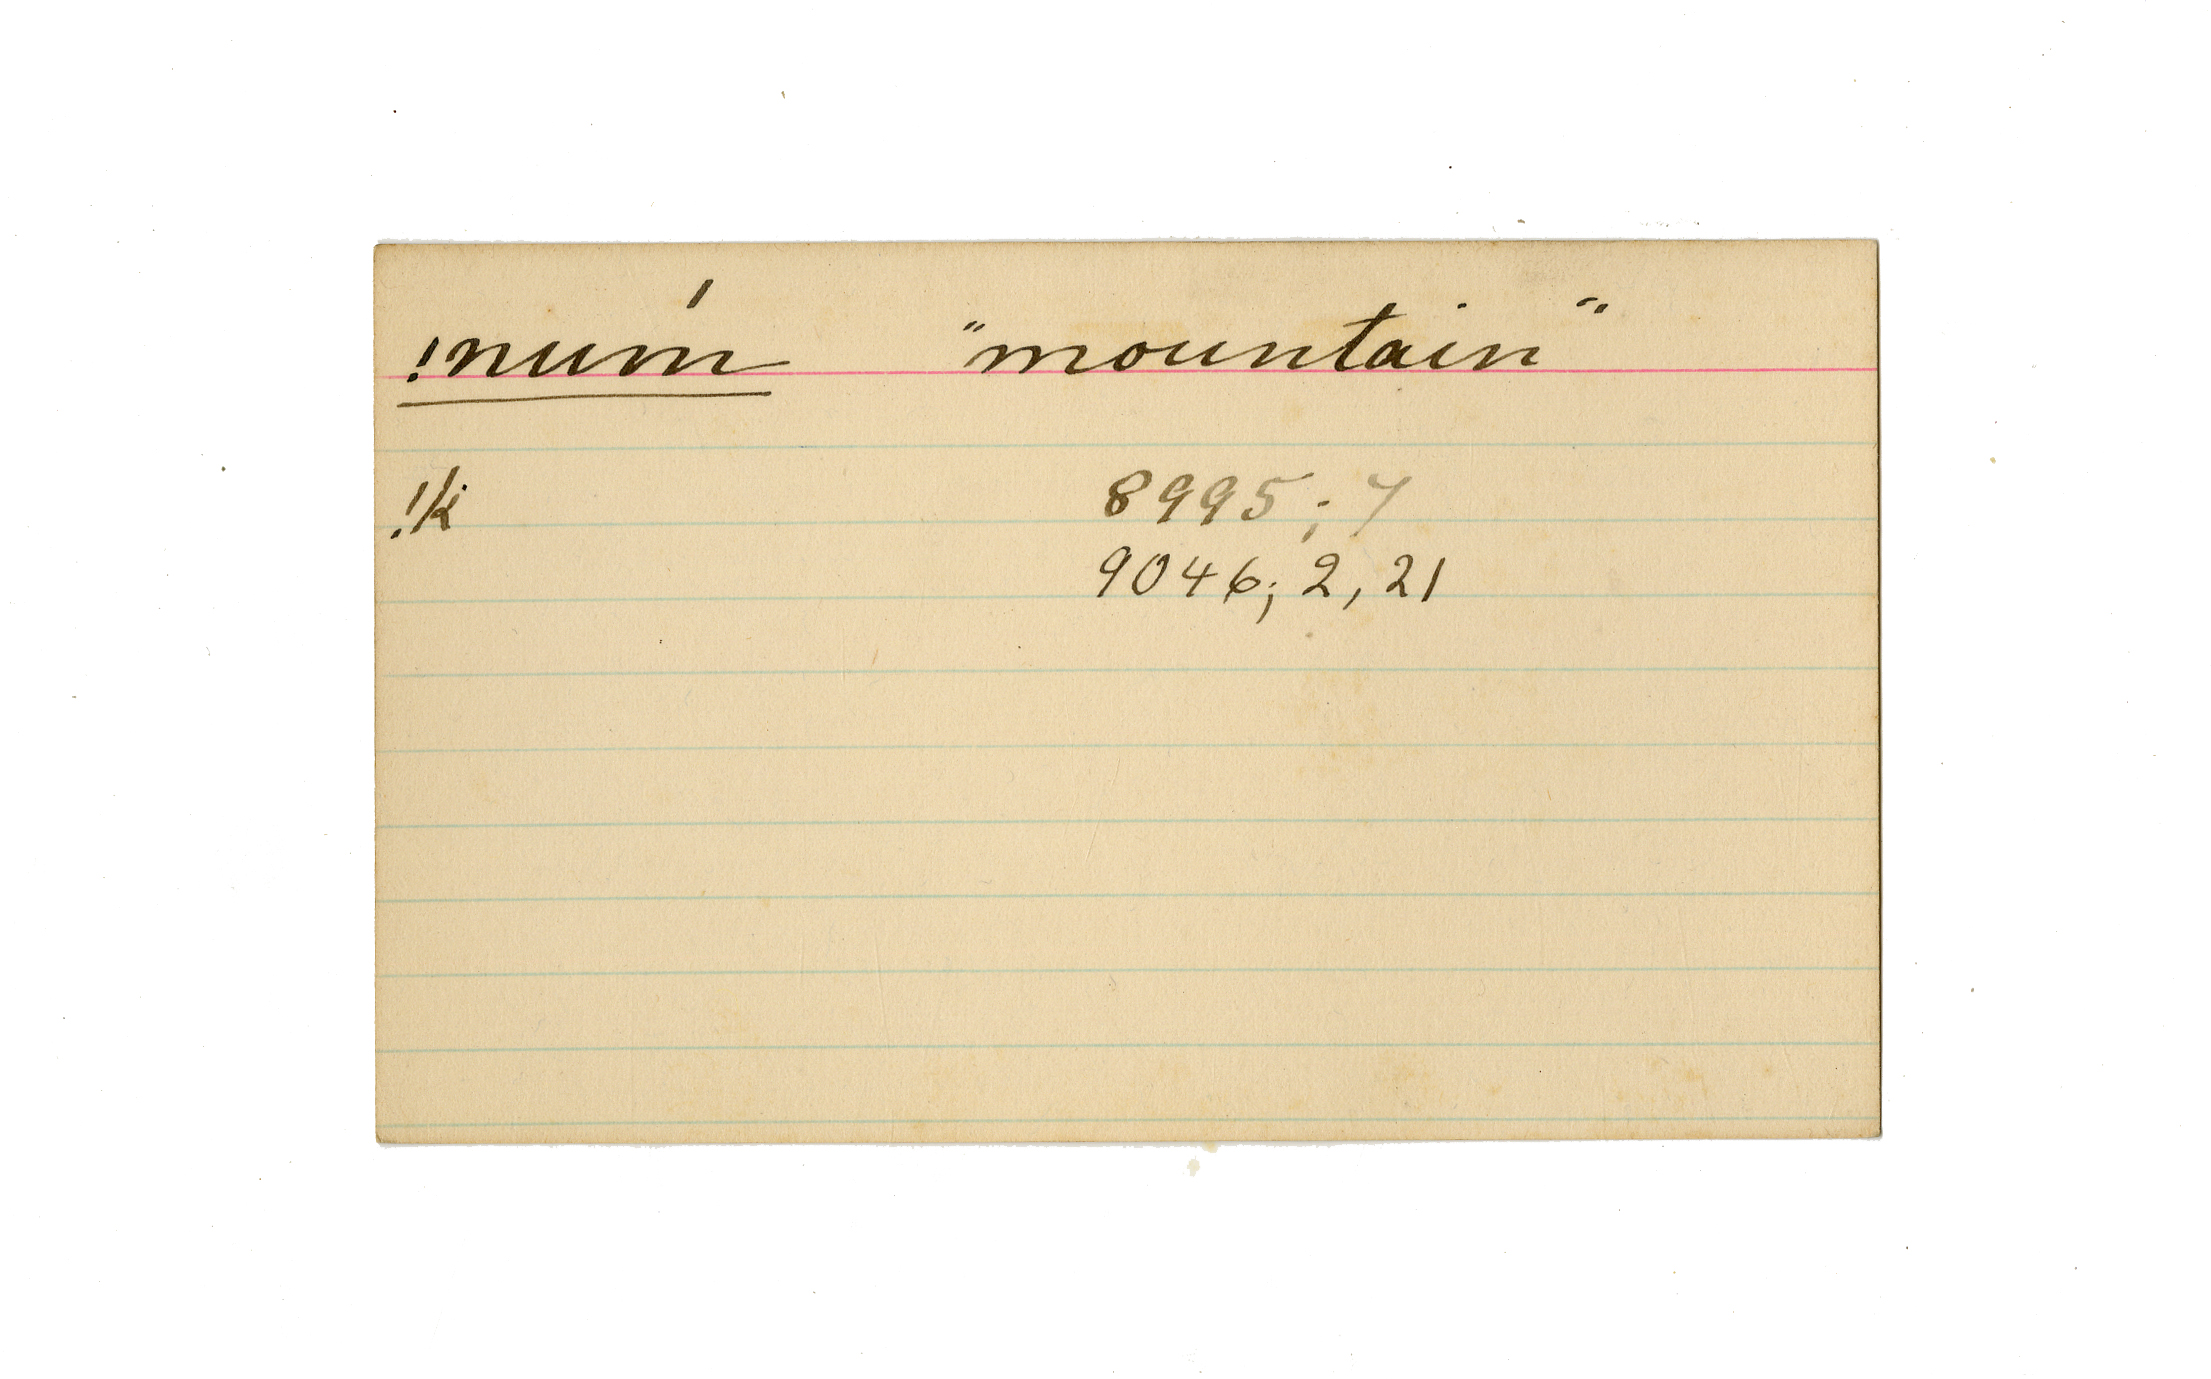 !nuḿ "mountain"
!k 8995; 7
9046; 2, 21